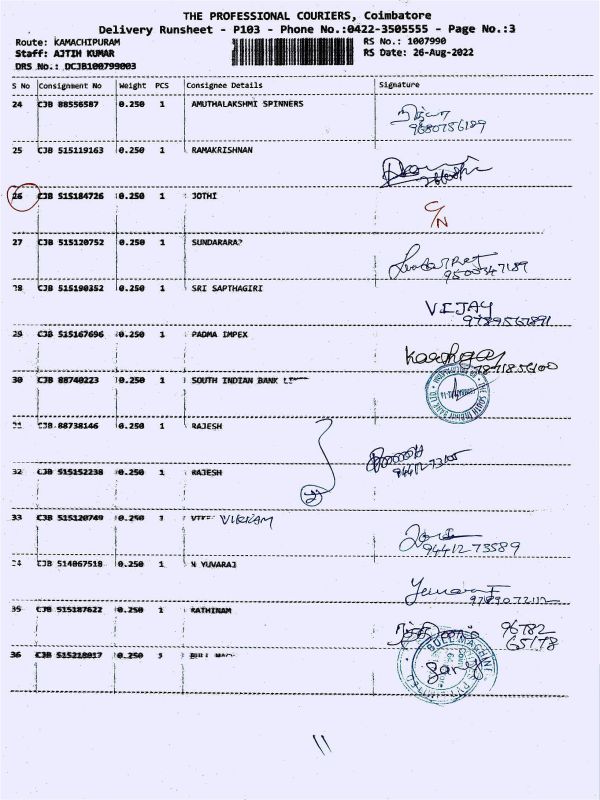 THE PROFESSIONAL COURIERS, Coimbatore
Delivery Runsheet - P103 - Phone No.:0422-3505555 - Page No.:3
Route: KAMACHIPURAM RS No.: 1007990
Staff: AJTIH KUMAR RS Date: 26-Aug-2022
DRS No.: DCJB100799003
S No Consignment No Weight PCS Consignee Details Signature
24 CJB 88556587 0.250 1 AMUTHALAKSHMI SPINNERS
9680756189
25 CJB 515119163 0.250 1 RAMAKRISHNAN
26 CJB 515184726 0.250 1 JOTHI C/N
27 CJB 515120752 0.250 1
9500347189
28 CJB 515190352 0.250 1 SRI SAPTHAGIRI VIJAY
9789567891
29 CJB 515167696 0.250 1 PADMA IMPEX
7871856100
30 CJB 88740223 0.250 1 SOUTH INDIAN BANK
31 CJB 88738146 0.250 1 RAJESH
32 CJB 515152238 0.250 1 RAJESH
2
33 CJB 515120749 0.250 1 VIKRAM
9441273589
34 CJB 514067518 0.250 1 N YUVARAJ
35 CJB 515187622 0.250 1 RATHINAM 96782
65178
36 CJB 515218017 0.250 1
BULL MACHINE
11